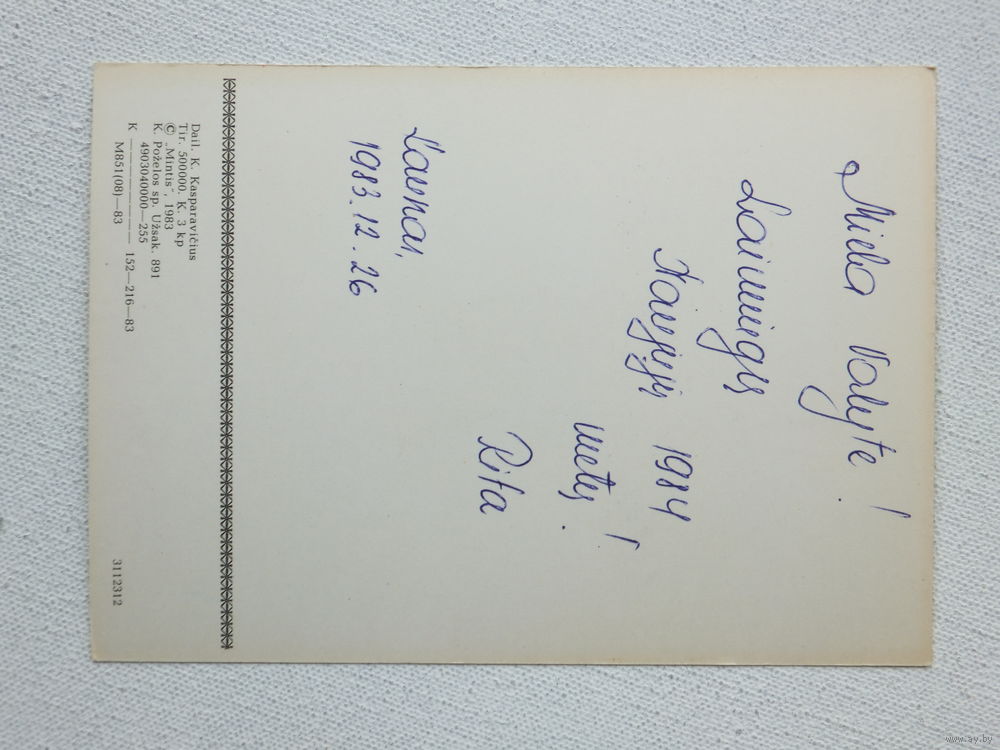 Miela Valyte!
Laimingų
Naujųjų 1984
metų!
Rita
1983.12.26
Dail. K. Kasparavičius
Tir. 500000. K. 3 kp
© „Mintis“, 1983
K. Poželos sp. Užsak. 891
K 4903040000—255 / M851(08)—83 152—216—83
3112312
www.ay.by